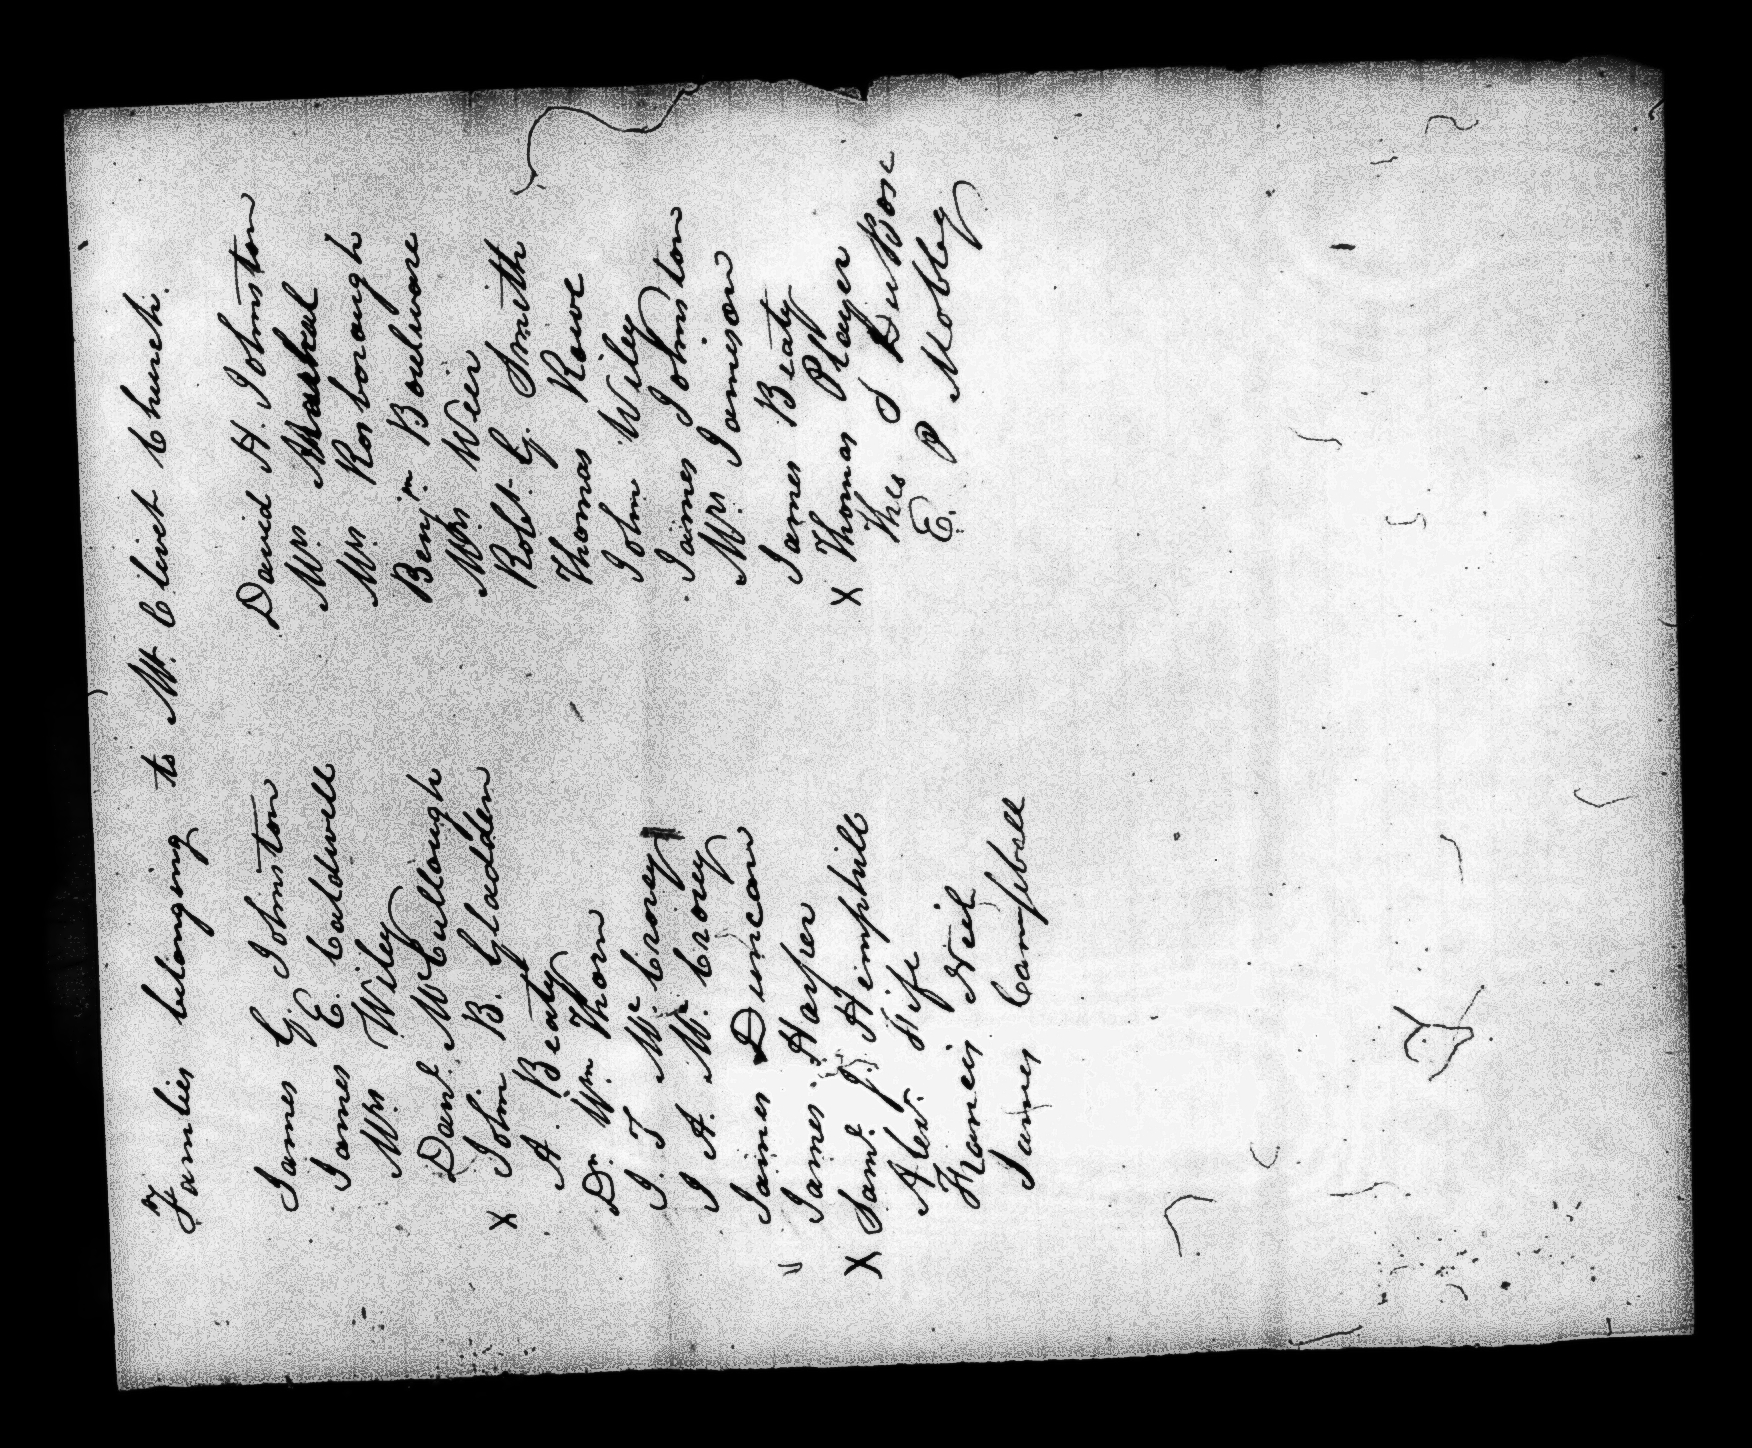 Families belonging to Mt. Olivet Church.
James G. Johnston
James E. Caldwell
Mrs Wiley
Danl. McCullough
X John B. Gladden
A. Beaty
Dr. Wm. Thorn
J. T McCrorey
J A. McCrory
James Duncan
James Harper
X Saml. J. Hemphill
Alex. Fife
Francis Neil
James Campbell
David H. Johnston
Mrs
Mrs Rosborough
Benjm. Boulware
Mrs Weir
Robt. G. Smith
Thomas Rowe
John Wiley
James Johnston
Mrs. Jameson
James Beaty
X Thomas Player
Thos J DuBose
E. P Mobley